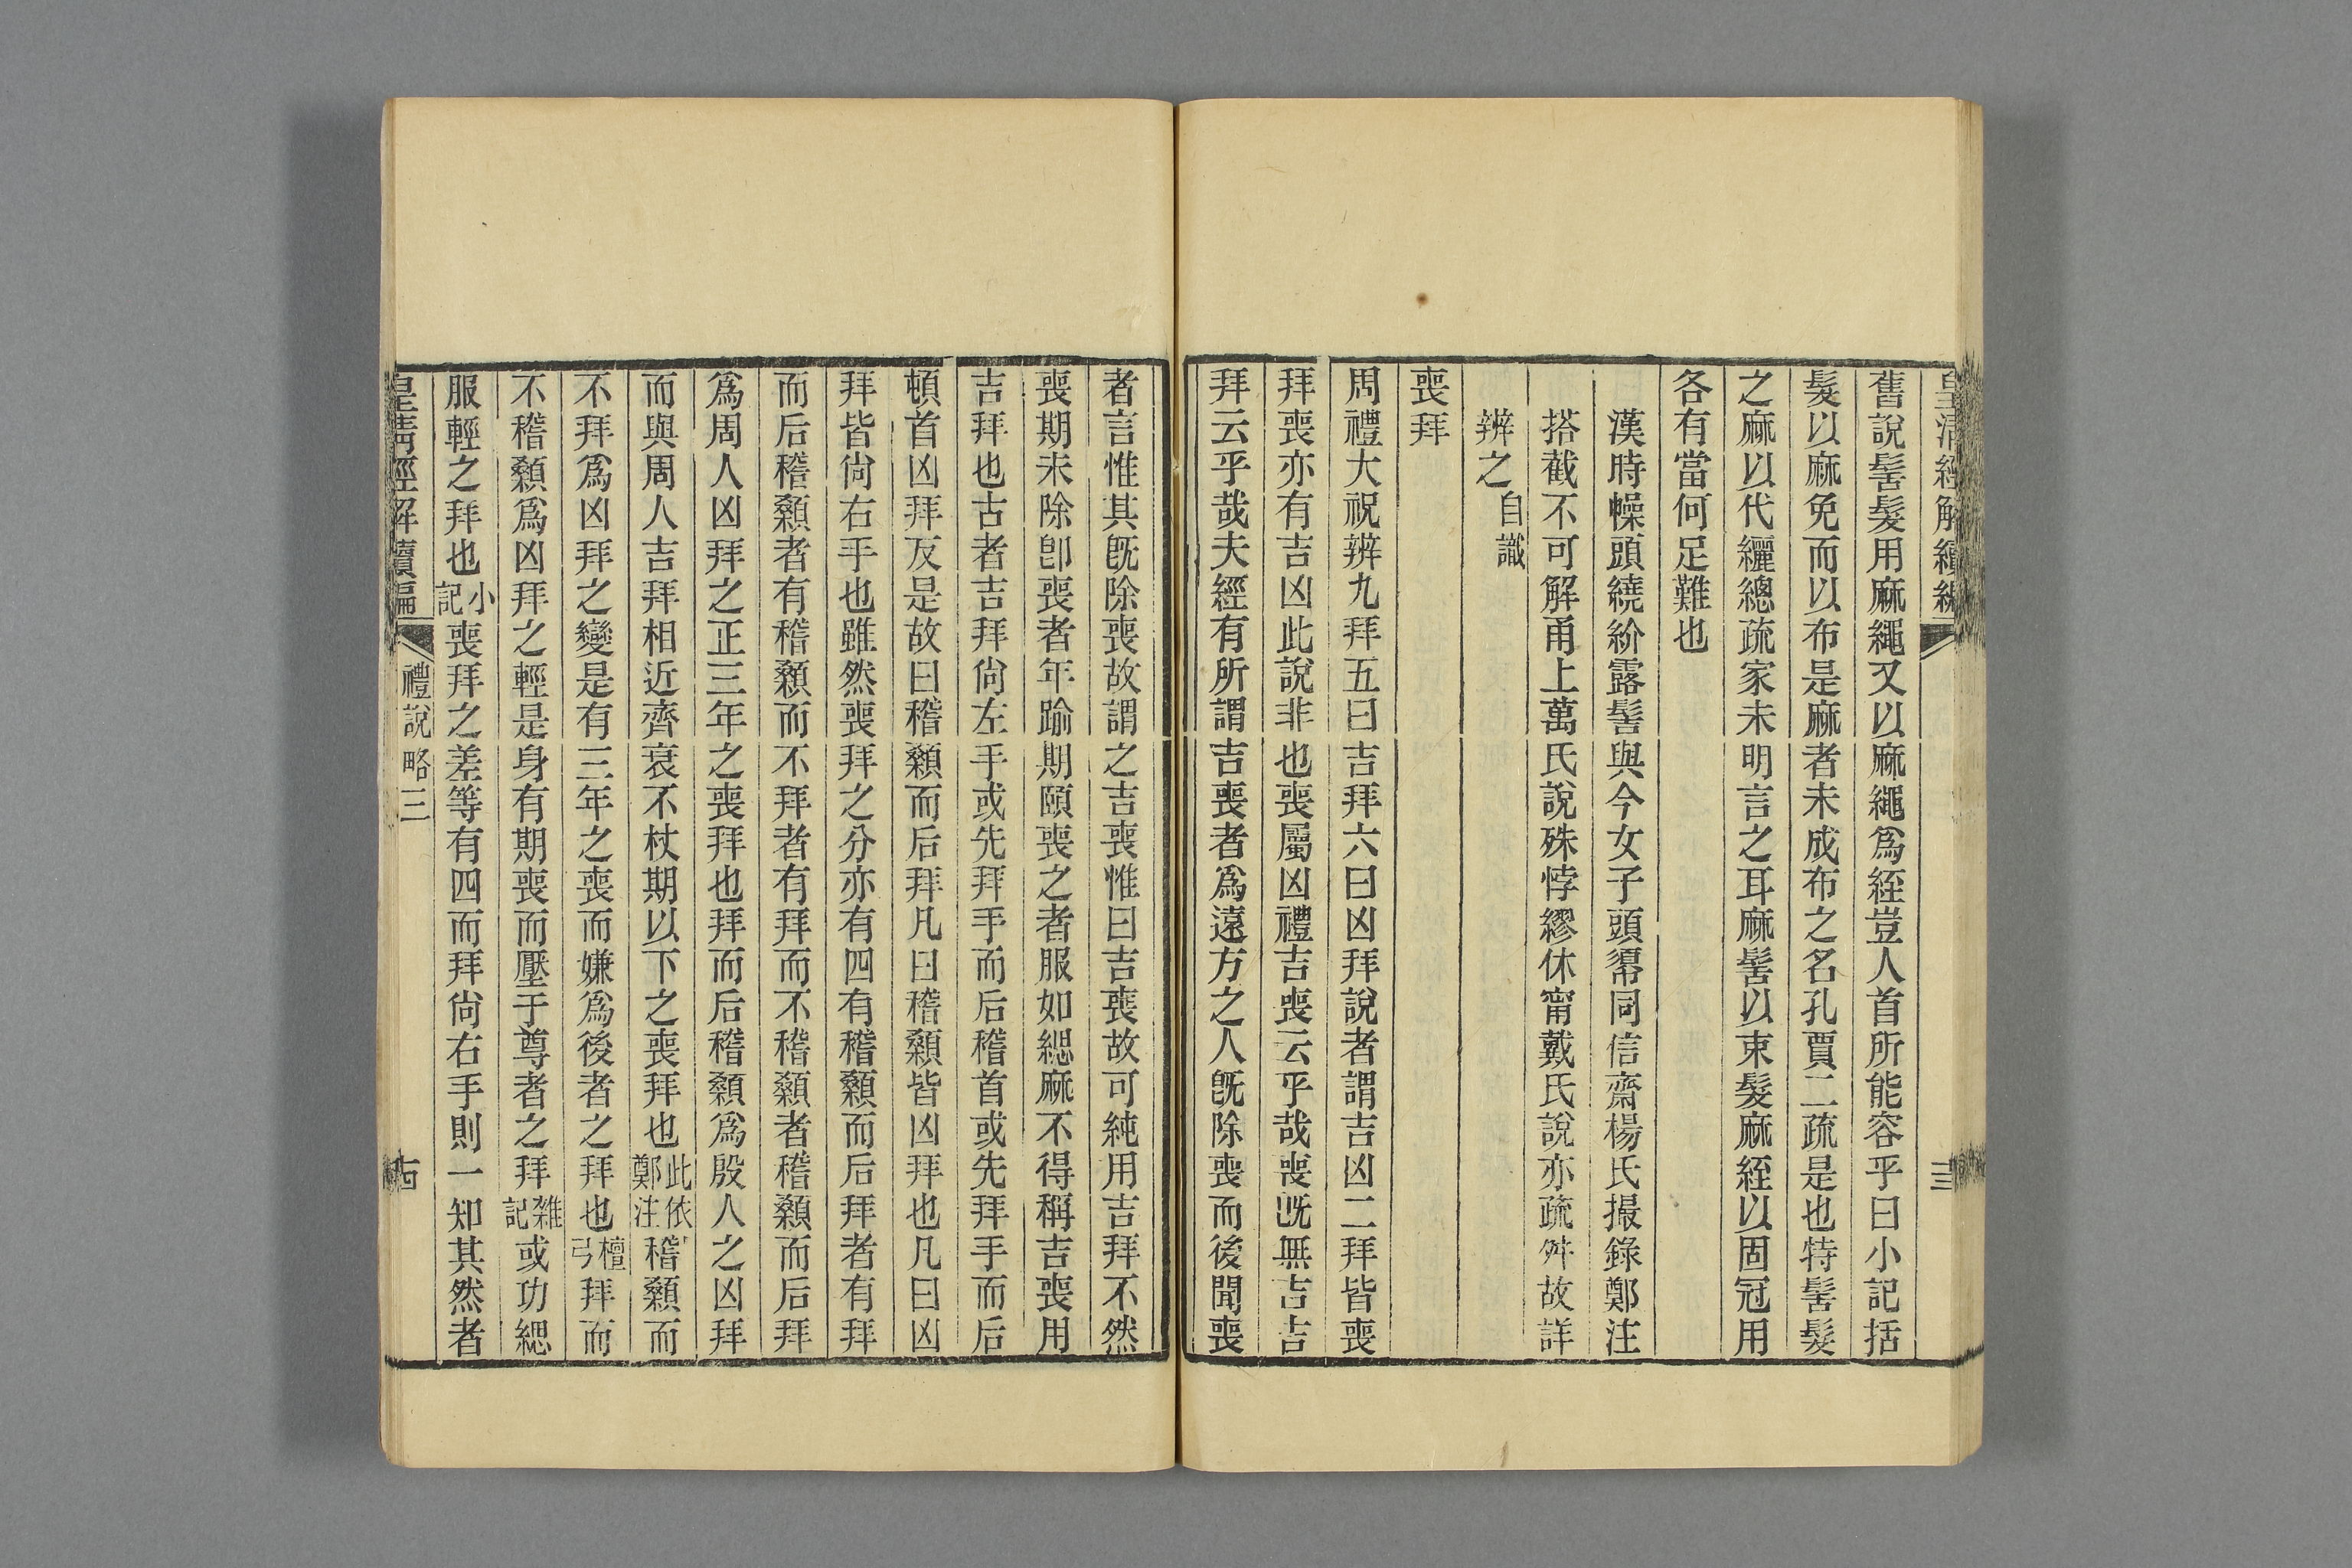 皇清經解續編
三
舊說髻髮用麻繩又以麻繩爲絰豈人首所能容乎曰小記括
髮以麻免而以布是麻者未成布之名孔賈二疏是也特髻髮
之麻以代纚總疏家未明言之耳麻髻以束髮麻絰以固冠用
各有當何足難也
漢時幧頭繞紒露髻與今女子頭𢄼同信齋楊氏撮錄鄭注
搭截不可解甬上萬氏說殊悖繆休甯戴氏說亦疏舛故詳
辨之自識
喪拜
周禮大祝辨九拜五曰吉拜六曰凶拜說者謂吉凶二拜皆喪
拜喪亦有吉凶此說非也喪屬凶禮吉喪云乎哉喪旣無吉吉
拜云乎哉夫經有所謂吉喪者爲遠方之人旣除喪而後聞喪
者言惟其旣除喪故謂之吉喪惟曰吉喪故可純用吉拜不然
喪期未除卽喪者年踰期頤喪之者服如緦麻不得稱吉喪用
吉拜也古者吉拜尙左手或先拜手而后稽首或先拜手而后
頓首凶拜反是故曰稽顙而后拜凡曰稽顙皆凶拜也凡曰凶
拜皆尙右手也雖然喪拜之分亦有四有稽顙而后拜者有拜
而后稽顙者有稽顙而不拜者有拜而不稽顙者稽顙而后拜
爲周人凶拜之正三年之喪拜也拜而后稽顙爲殷人之凶拜
而與周人吉拜相近齊衰不杖期以下之喪拜也此依鄭注稽顙而
不拜爲凶拜之變是有三年之喪而嫌爲後者之拜也檀弓拜而
不稽顙爲凶拜之輕是身有期喪而壓于尊者之拜雜記或功緦
服輕之拜也小記喪拜之差等有四而拜尙右手則一知其然者
皇清經解續編
禮說略三
古